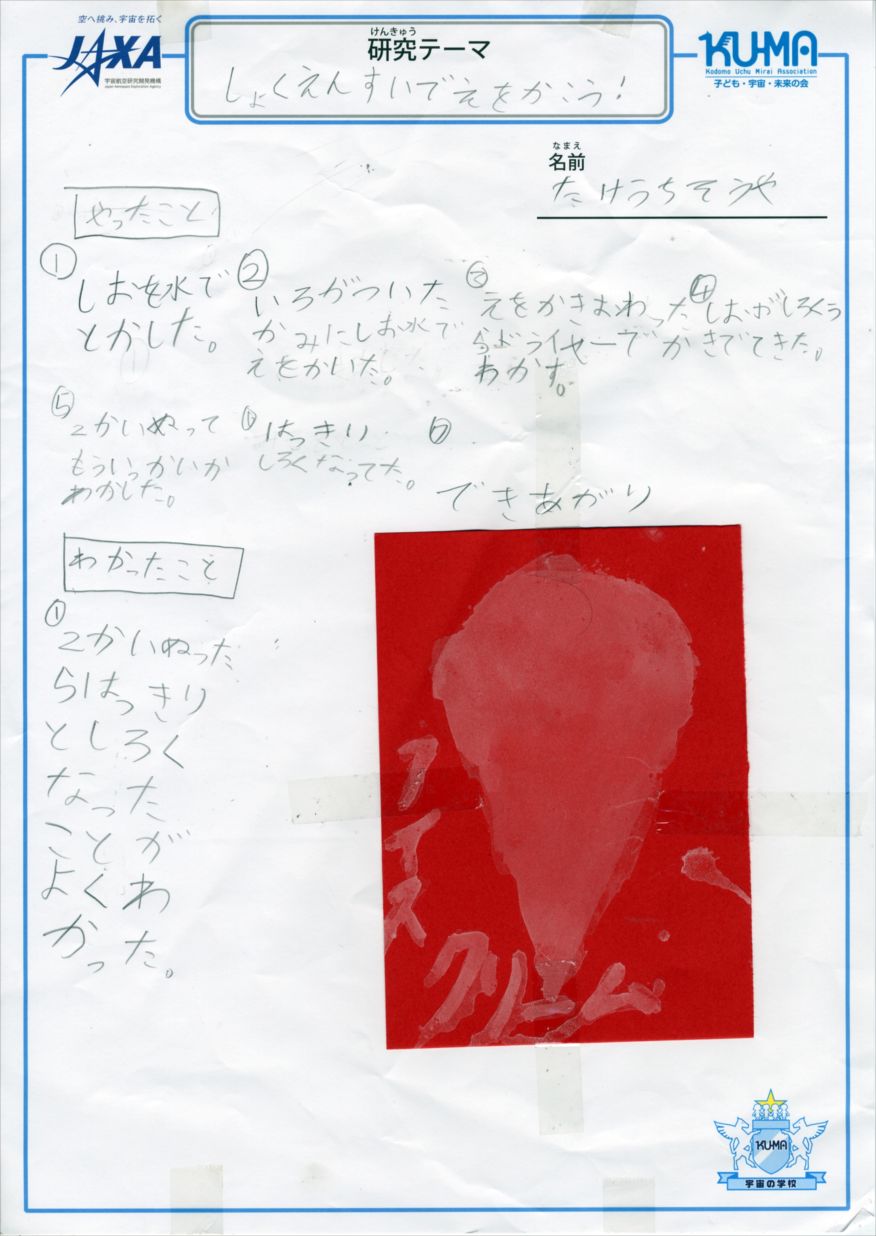 空へ挑み、宇宙を拓く
JAXA
宇宙航空研究開発機構
Japan Aerospace Exploration Agency
けんきゅう
研究テーマ
しょくえんすいでえをかこう!
KU-MA
Kodomo Uchu Mirai Association
子ども・宇宙・未来の会
なまえ
名前
たけうちそうや
やったこと
①
しおを水で
とかした。
②
いろがついた
かみにしお水で
えをかいた。
③
えをかきおわった
らドライヤーでか
わかす。
④
しおがしろくう
きでてきた。
⑤
2かいぬって
もういっかいか
わかした。
⑥
はっきり
しろくなってた。
⑦
できあがり
わかったこと
①
2かいぬった
らはっきり
としろく
なった
ことが
よくわ
かった。
アイス
クリーム
KU-MA
宇宙の学校